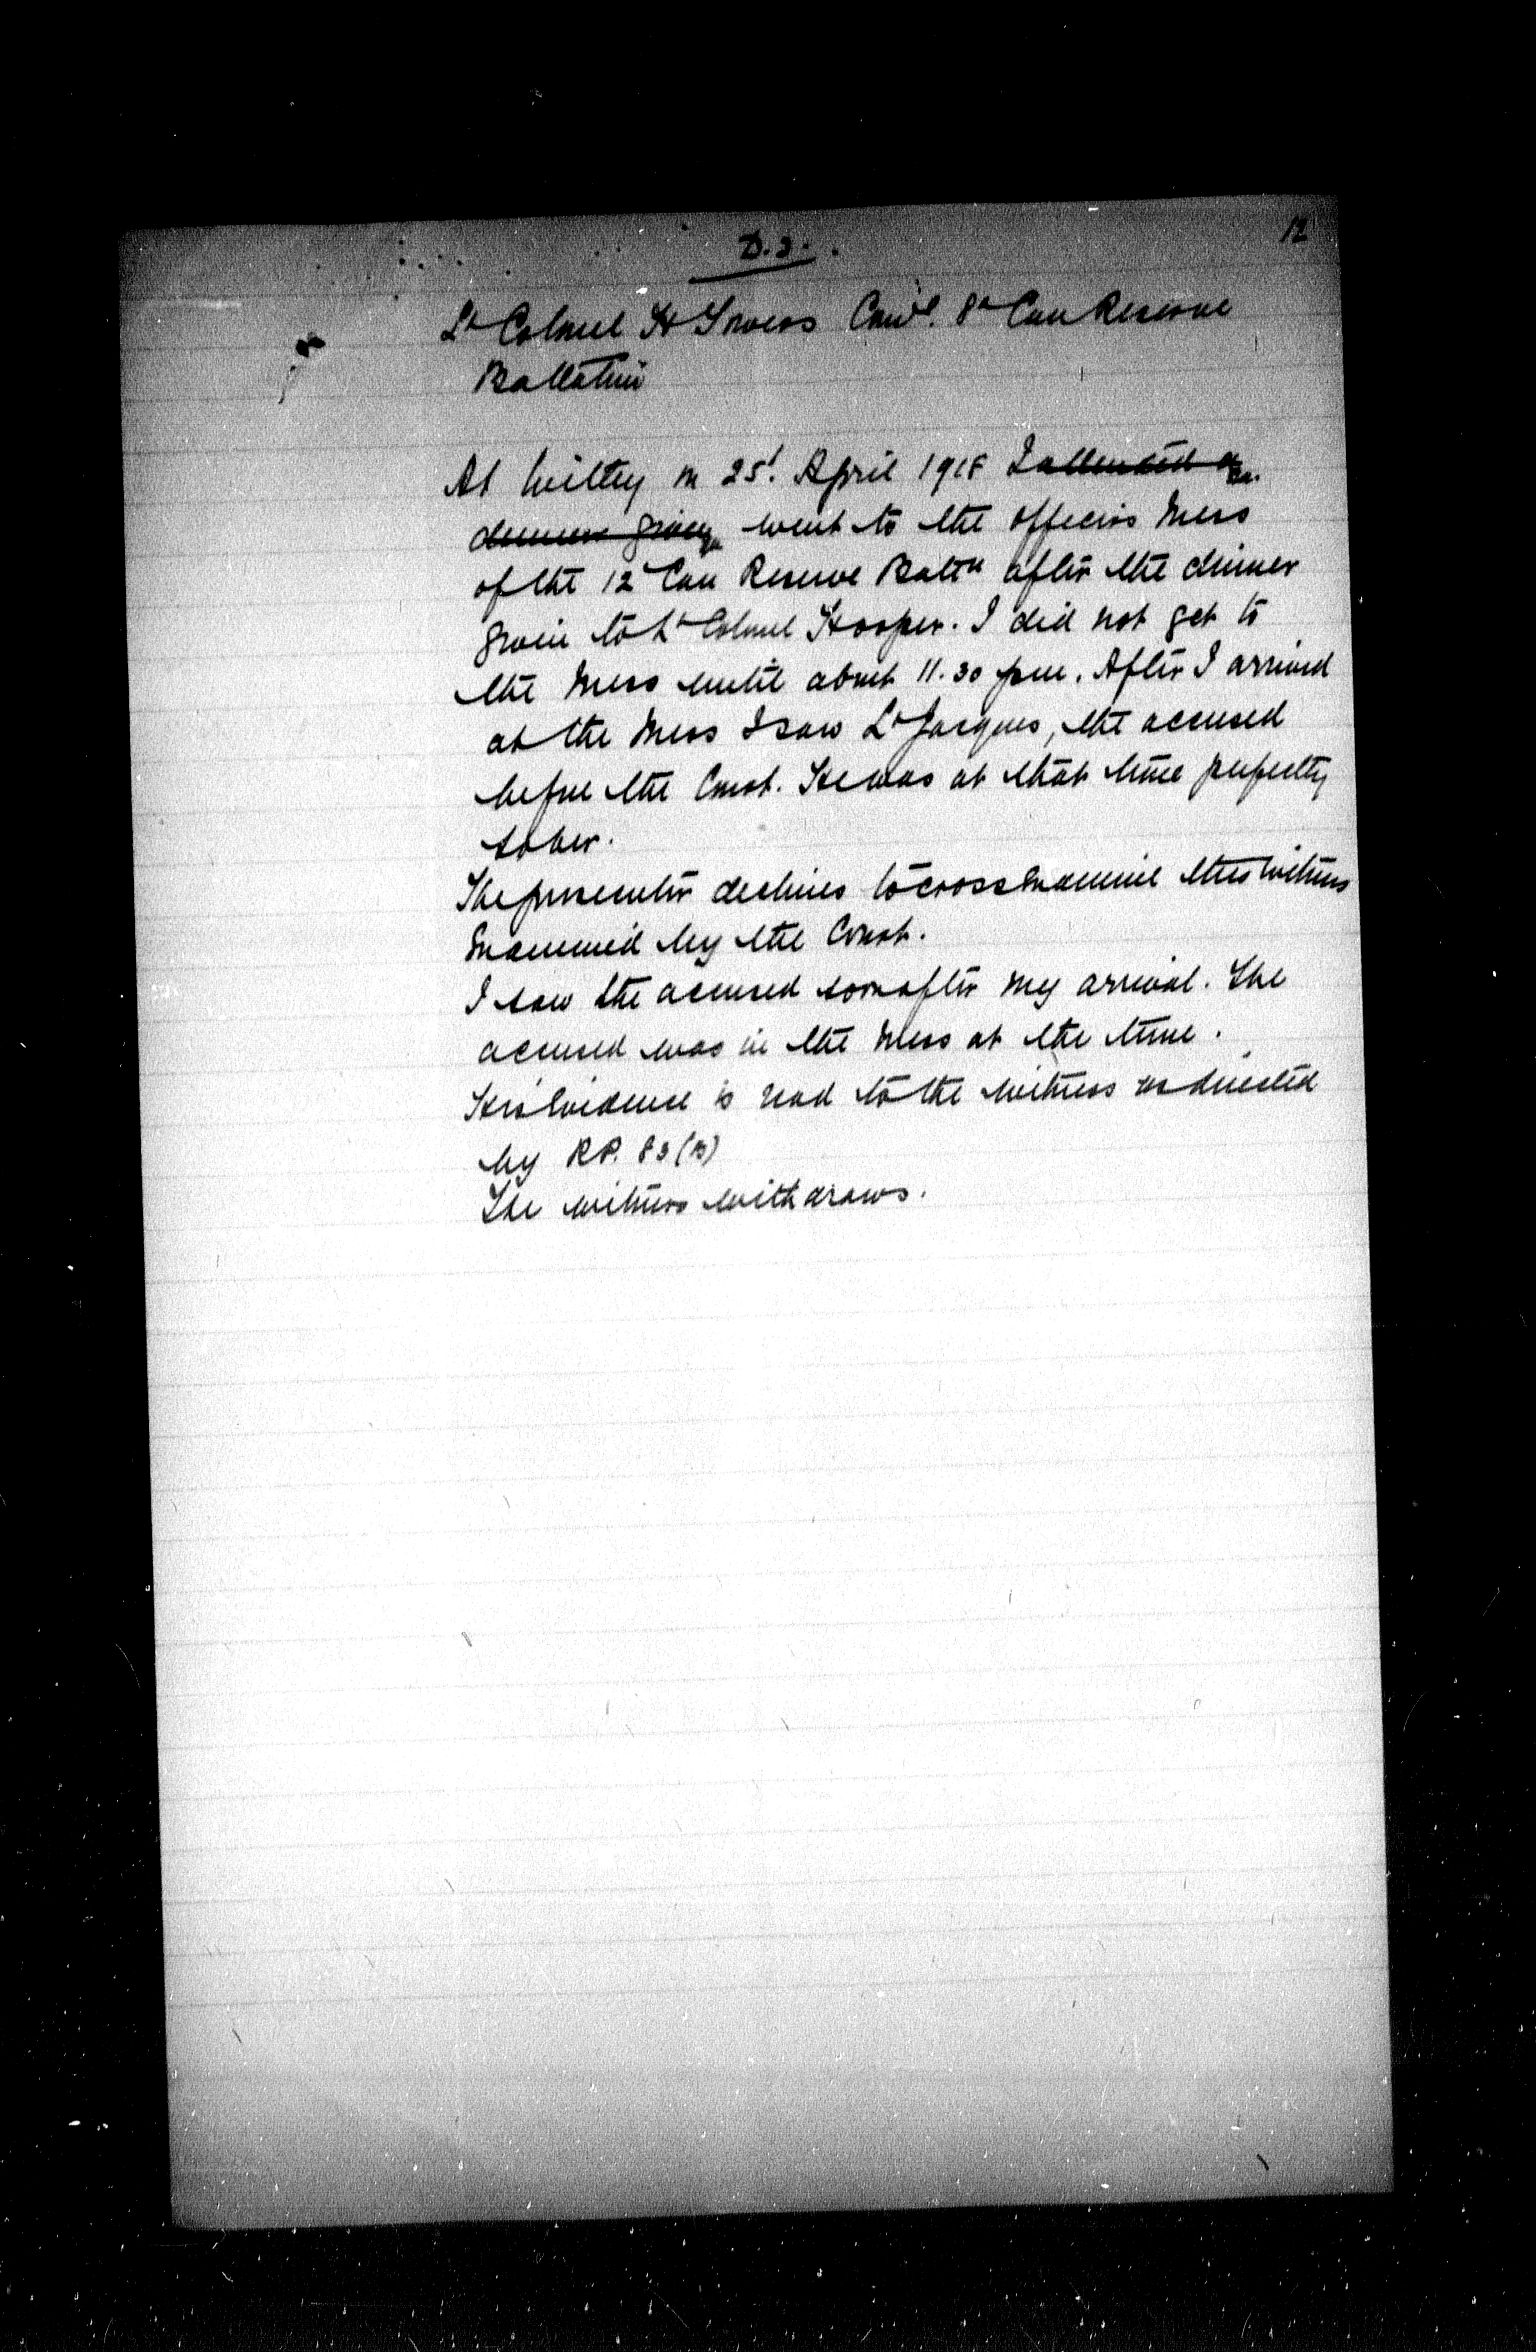 12
D.3.
Lt Colonel H Towers Comd. 8th Can Reserve
Battalion
At Witley on 25th April 1918 I attended a
dinner given went to the officers Mess
of the 12th Can Reserve Battn after the dinner
given to Lt Colonel Hooper. I did not get to
the Mess until about 11.30 pm. After I arrived
at the Mess I saw Lt Jacques, the accused
before the Court. He was at that time perfectly
sober.
The prosecutor declines to cross examine this witness
Examined by the Court.
I saw the accused soon after my arrival. The
accused was in the Mess at the time.
His Evidence is read to the witness as directed
by RP. 83 (B)
The witness withdraws.